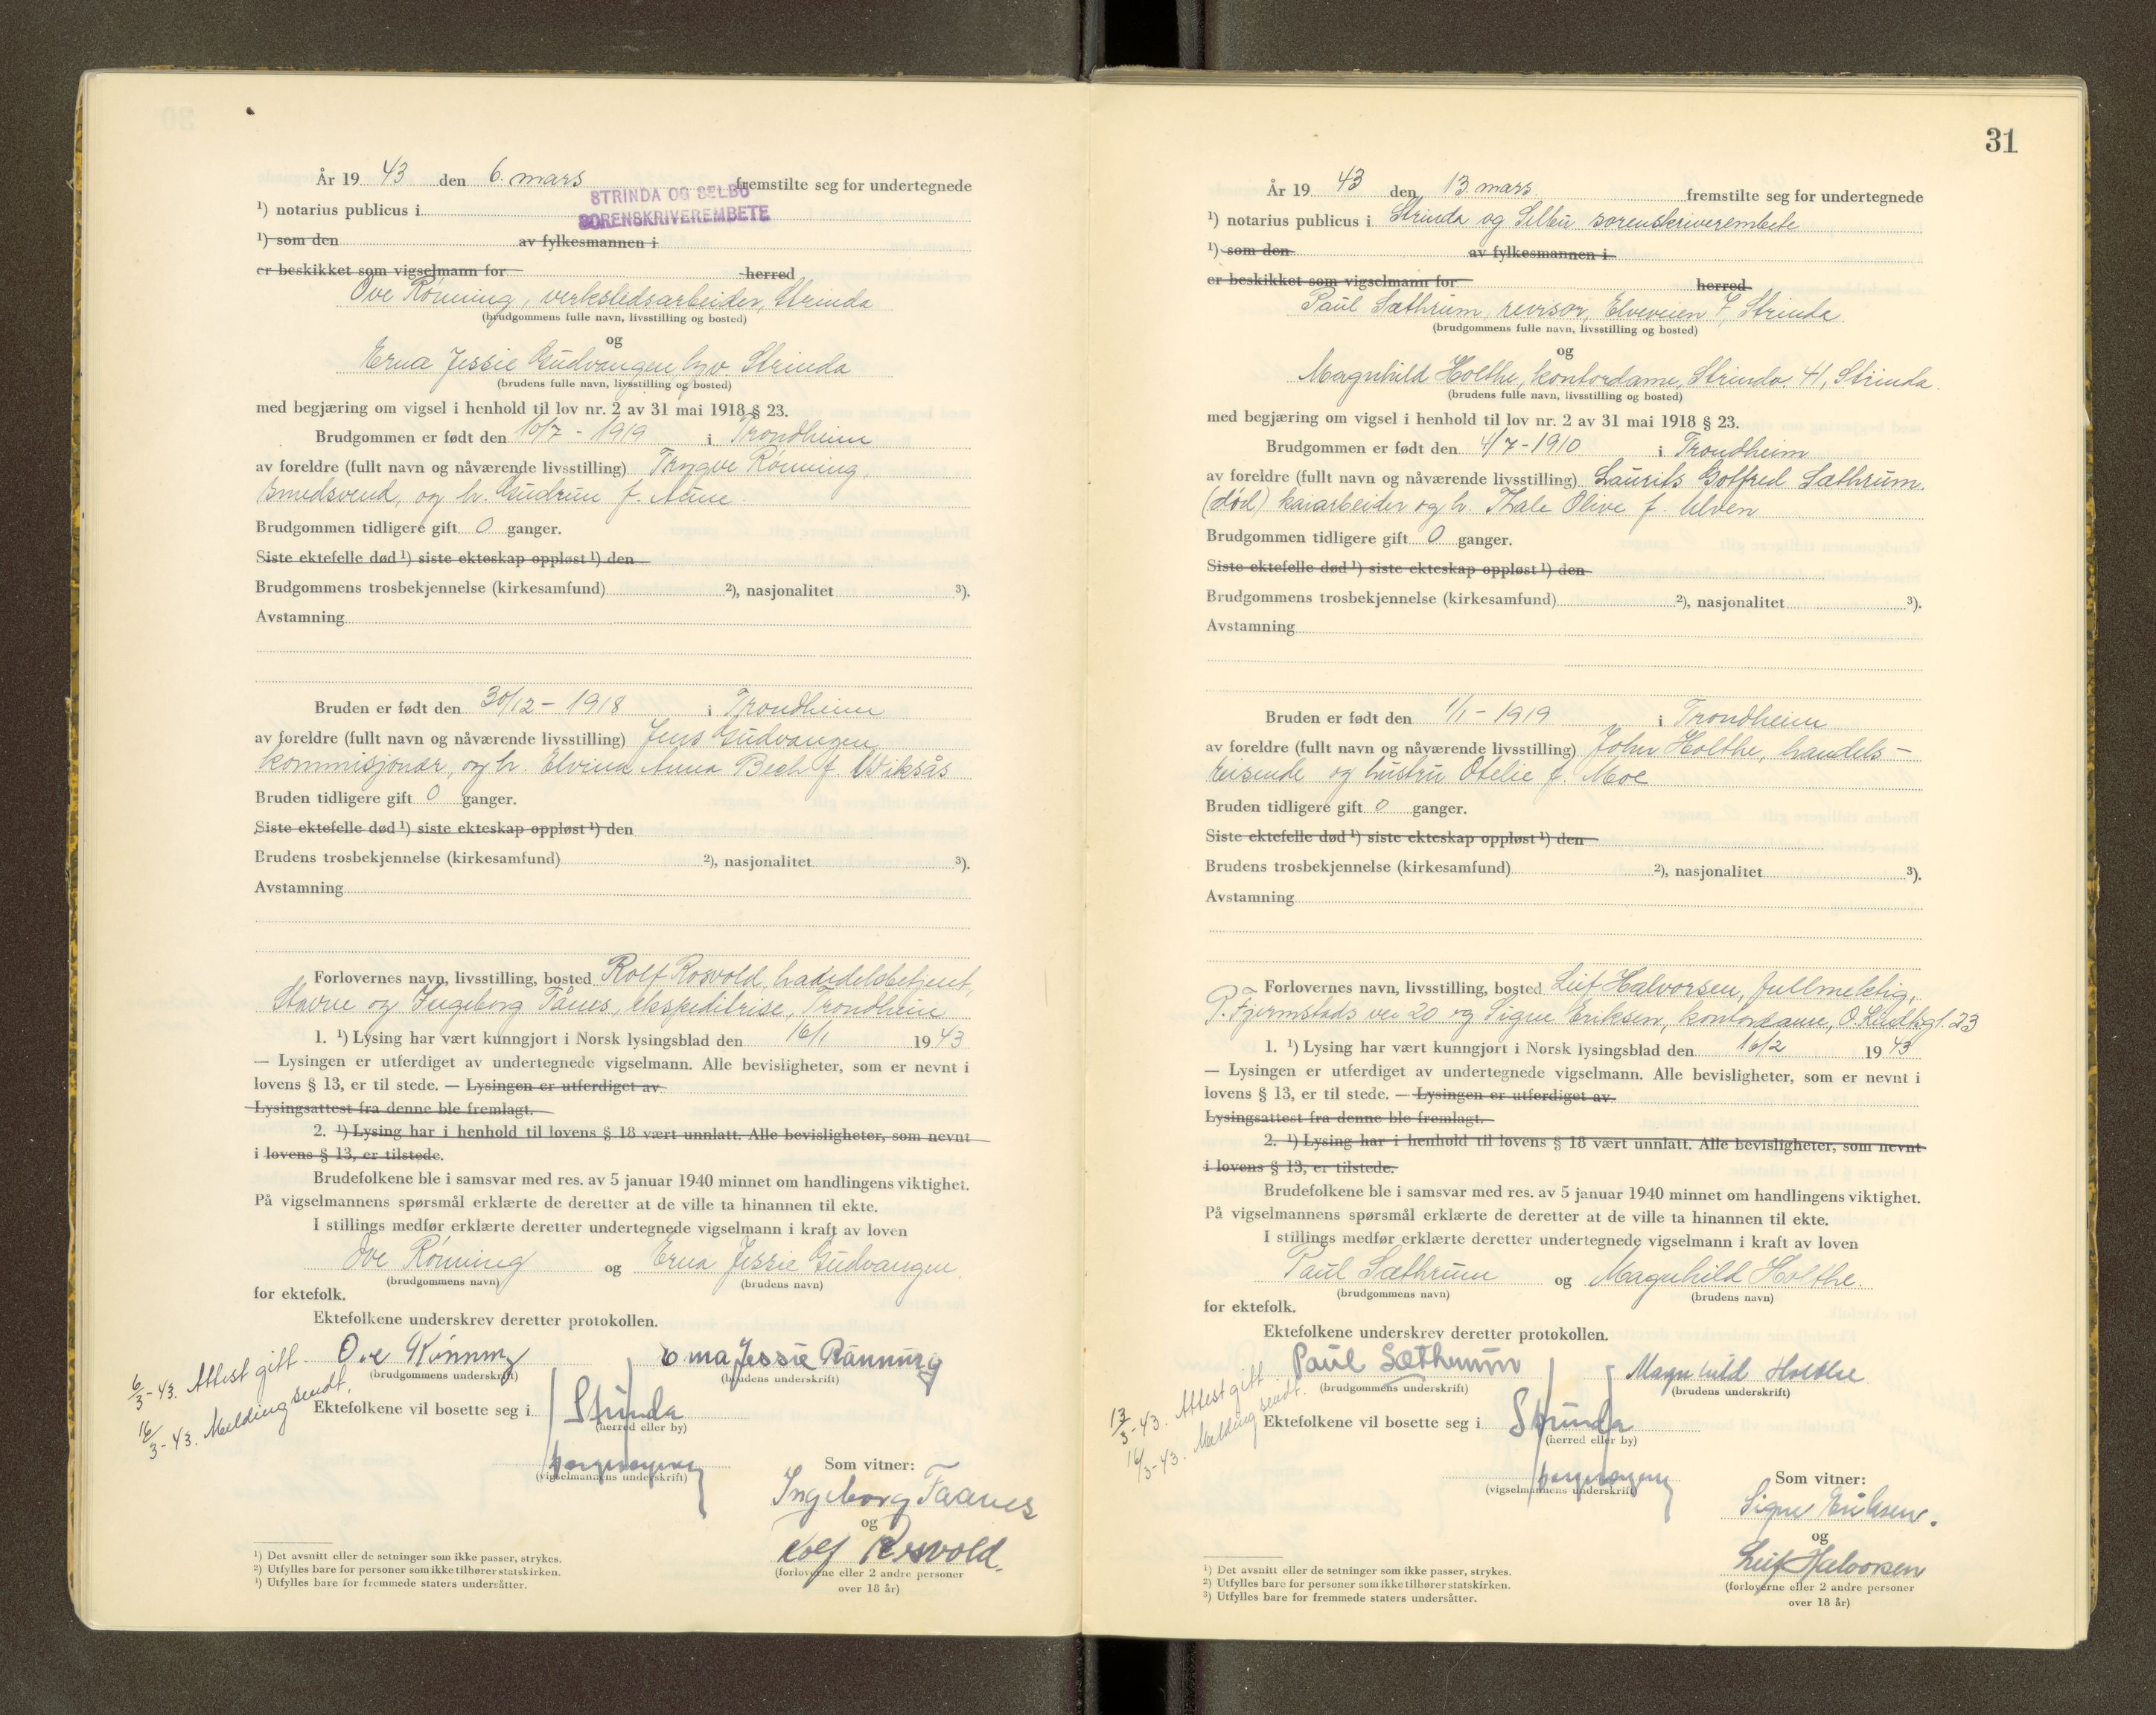 År 19 43 den 6. mars fremstilte seg for undertegnede
STRINDA OG SELBU
SORENSKRIVEREMBETE
¹) notarius publicus i
¹) som den av fylkesmannen i
er beskikket som vigselmann for herred
Ove Rönning, verkstedsarbeider, Strinda
(brudgommens fulle navn, livsstilling og bosted)
og
Erna Jessie Gudvangen, hv. Strinda
(brudens fulle navn, livsstilling og bosted)
med begjæring om vigsel i henhold til lov nr. 2 av 31 mai 1918 § 23.
Brudgommen er født den 16/7 - 1919 i Trondheim
av foreldre (fullt navn og nåværende livsstilling) Trygve Rönning,
smedsvend, og h. Gudrun f. Aune.
Brudgommen tidligere gift 0 ganger.
Siste ektefelle død ¹) siste ekteskap oppløst ¹) den
Brudgommens trosbekjennelse (kirkesamfund) ²), nasjonalitet ³).
Avstamning
Bruden er født den 30/12 - 1918 i Trondheim
av foreldre (fullt navn og nåværende livsstilling) Jens Gudvangen
kommisjonær, og h. Elvina Anna Bech f. Wiksås
Bruden tidligere gift 0 ganger.
Siste ektefelle død ¹) siste ekteskap oppløst ¹) den
Brudens trosbekjennelse (kirkesamfund) ²), nasjonalitet ³).
Avstamning
Forlovernes navn, livsstilling, bosted Rolf Rosvold, handelsbetjent,
Stavne og Ingeborg Fånes, ekspeditrise, Trondheim
1. ¹) Lysing har vært kunngjort i Norsk lysingsblad den 16/1 19 43
— Lysingen er utferdiget av undertegnede vigselmann. Alle bevisligheter, som er nevnt i
lovens § 13, er til stede. — Lysingen er utferdiget av
Lysingsattest fra denne ble fremlagt.
2. ¹) Lysing har i henhold til lovens § 18 vært unnlatt. Alle bevisligheter, som nevnt
i lovens § 13, er tilstede.
Brudefolkene ble i samsvar med res. av 5 januar 1940 minnet om handlingens viktighet.
På vigselmannens spørsmål erklærte de deretter at de ville ta hinannen til ekte.
I stillings medfør erklærte deretter undertegnede vigselmann i kraft av loven
Ove Rönning og Erna Jessie Gudvangen
(brudgommens navn) (brudens navn)
for ektefolk.
Ektefolkene underskrev deretter protokollen.
6/3-43. Attest gitt.
16/3-43. Melding sendt.
Ove Rönning Erna Jessie Rönning
(brudgommens underskrift) (brudens underskrift)
Ektefolkene vil bosette seg i Strinda
(herred eller by)
(vigselmannens underskrift)
Som vitner:
Ingeborg Faanes
og
Rolf Rosvold.
(forloverne eller 2 andre personer
over 18 år)
¹) Det avsnitt eller de setninger som ikke passer, strykes.
²) Utfylles bare for personer som ikke tilhører statskirken.
³) Utfylles bare for fremmede staters undersåtter.
31
År 19 43 den 13 mars fremstilte seg for undertegnede
¹) notarius publicus i Strinda og Selbu sorenskriverembete
¹) som den av fylkesmannen i
er beskikket som vigselmann for herred
Paul Sæthrum, revisor, Elveveien 7, Strinda
(brudgommens fulle navn, livsstilling og bosted)
og
Magnhild Holthe, kontordame, Strindv. 41, Strinda.
(brudens fulle navn, livsstilling og bosted)
med begjæring om vigsel i henhold til lov nr. 2 av 31 mai 1918 § 23.
Brudgommen er født den 4/7 - 1910 i Trondheim
av foreldre (fullt navn og nåværende livsstilling) Laurits Gotfred Sæthrum.
(død) kaiarbeider og h. Thale Olive f. Ulven
Brudgommen tidligere gift 0 ganger.
Siste ektefelle død ¹) siste ekteskap oppløst ¹) den
Brudgommens trosbekjennelse (kirkesamfund) ²), nasjonalitet ³).
Avstamning
Bruden er født den 1/1 - 1919 i Trondheim
av foreldre (fullt navn og nåværende livsstilling) John Holthe, handels-
reisende og hustru Otelie f. Moe
Bruden tidligere gift 0 ganger.
Siste ektefelle død ¹) siste ekteskap oppløst ¹) den
Brudens trosbekjennelse (kirkesamfund) ²), nasjonalitet ³).
Avstamning
Forlovernes navn, livsstilling, bosted Leif Halvorsen, fullmektig,
P. Fjermstads vei 20 og Signe Eriksen, kontordame, 23
1. ¹) Lysing har vært kunngjort i Norsk lysingsblad den 16/2 19 43
— Lysingen er utferdiget av undertegnede vigselmann. Alle bevisligheter, som er nevnt i
lovens § 13, er til stede. — Lysingen er utferdiget av
Lysingsattest fra denne ble fremlagt.
2. ¹) Lysing har i henhold til lovens § 18 vært unnlatt. Alle bevisligheter, som nevnt
i lovens § 13, er tilstede.
Brudefolkene ble i samsvar med res. av 5 januar 1940 minnet om handlingens viktighet.
På vigselmannens spørsmål erklærte de deretter at de ville ta hinannen til ekte.
I stillings medfør erklærte deretter undertegnede vigselmann i kraft av loven
Paul Sæthrum og Magnhild Holthe.
(brudgommens navn) (brudens navn)
for ektefolk.
Ektefolkene underskrev deretter protokollen.
13/3-43. Attest gitt.
16/3-43. Melding sendt.
Paul Sæthrum Magnhild Holthe
(brudgommens underskrift) (brudens underskrift)
Ektefolkene vil bosette seg i Strinda
(herred eller by)
(vigselmannens underskrift)
Som vitner:
Signe Eriksen.
og
Leif Halvorsen
(forloverne eller 2 andre personer
over 18 år)
¹) Det avsnitt eller de setninger som ikke passer, strykes.
²) Utfylles bare for personer som ikke tilhører statskirken.
³) Utfylles bare for fremmede staters undersåtter.